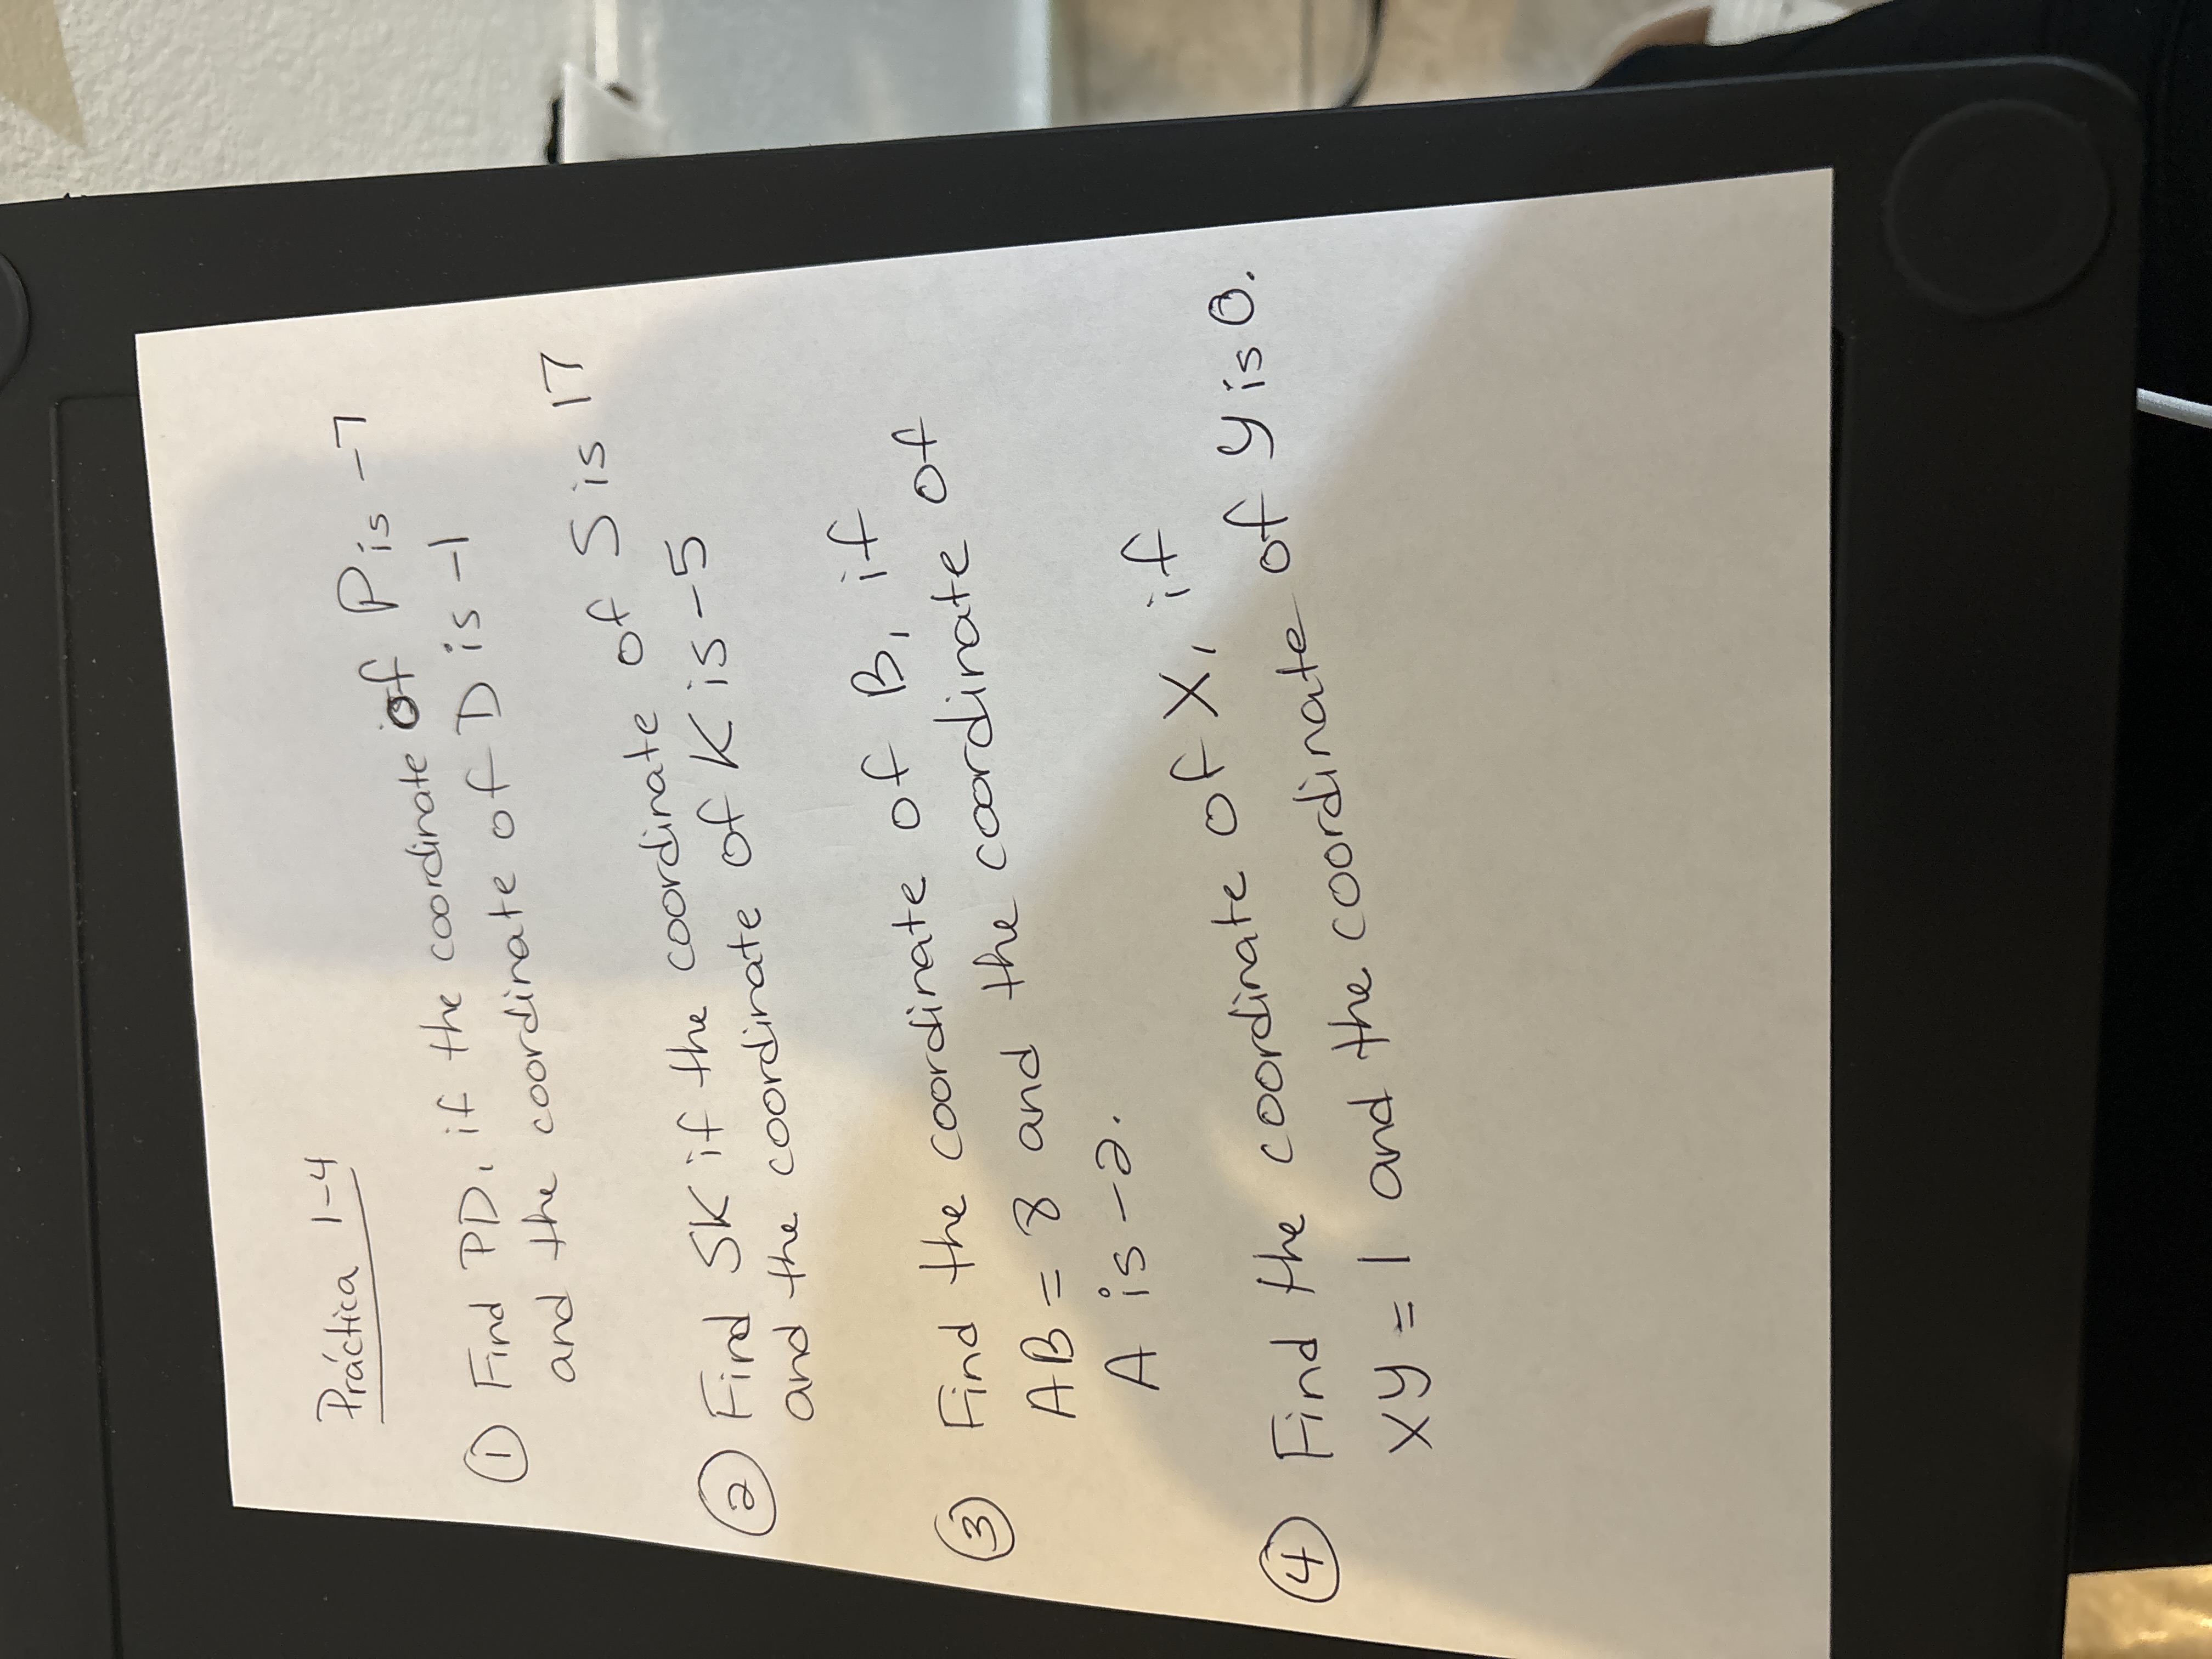 Práctica 1-4
① Find PD, if the coordinate of P is -7
and the coordinate of D is -1
② Find SK if the coordinate of S is 17
and the coordinate of K is -5
③ Find the coordinate of B, if
AB = 8 and the coordinate of
A is -2.
④ Find the coordinate of X, if
XY = 1 and the coordinate of Y is 0.